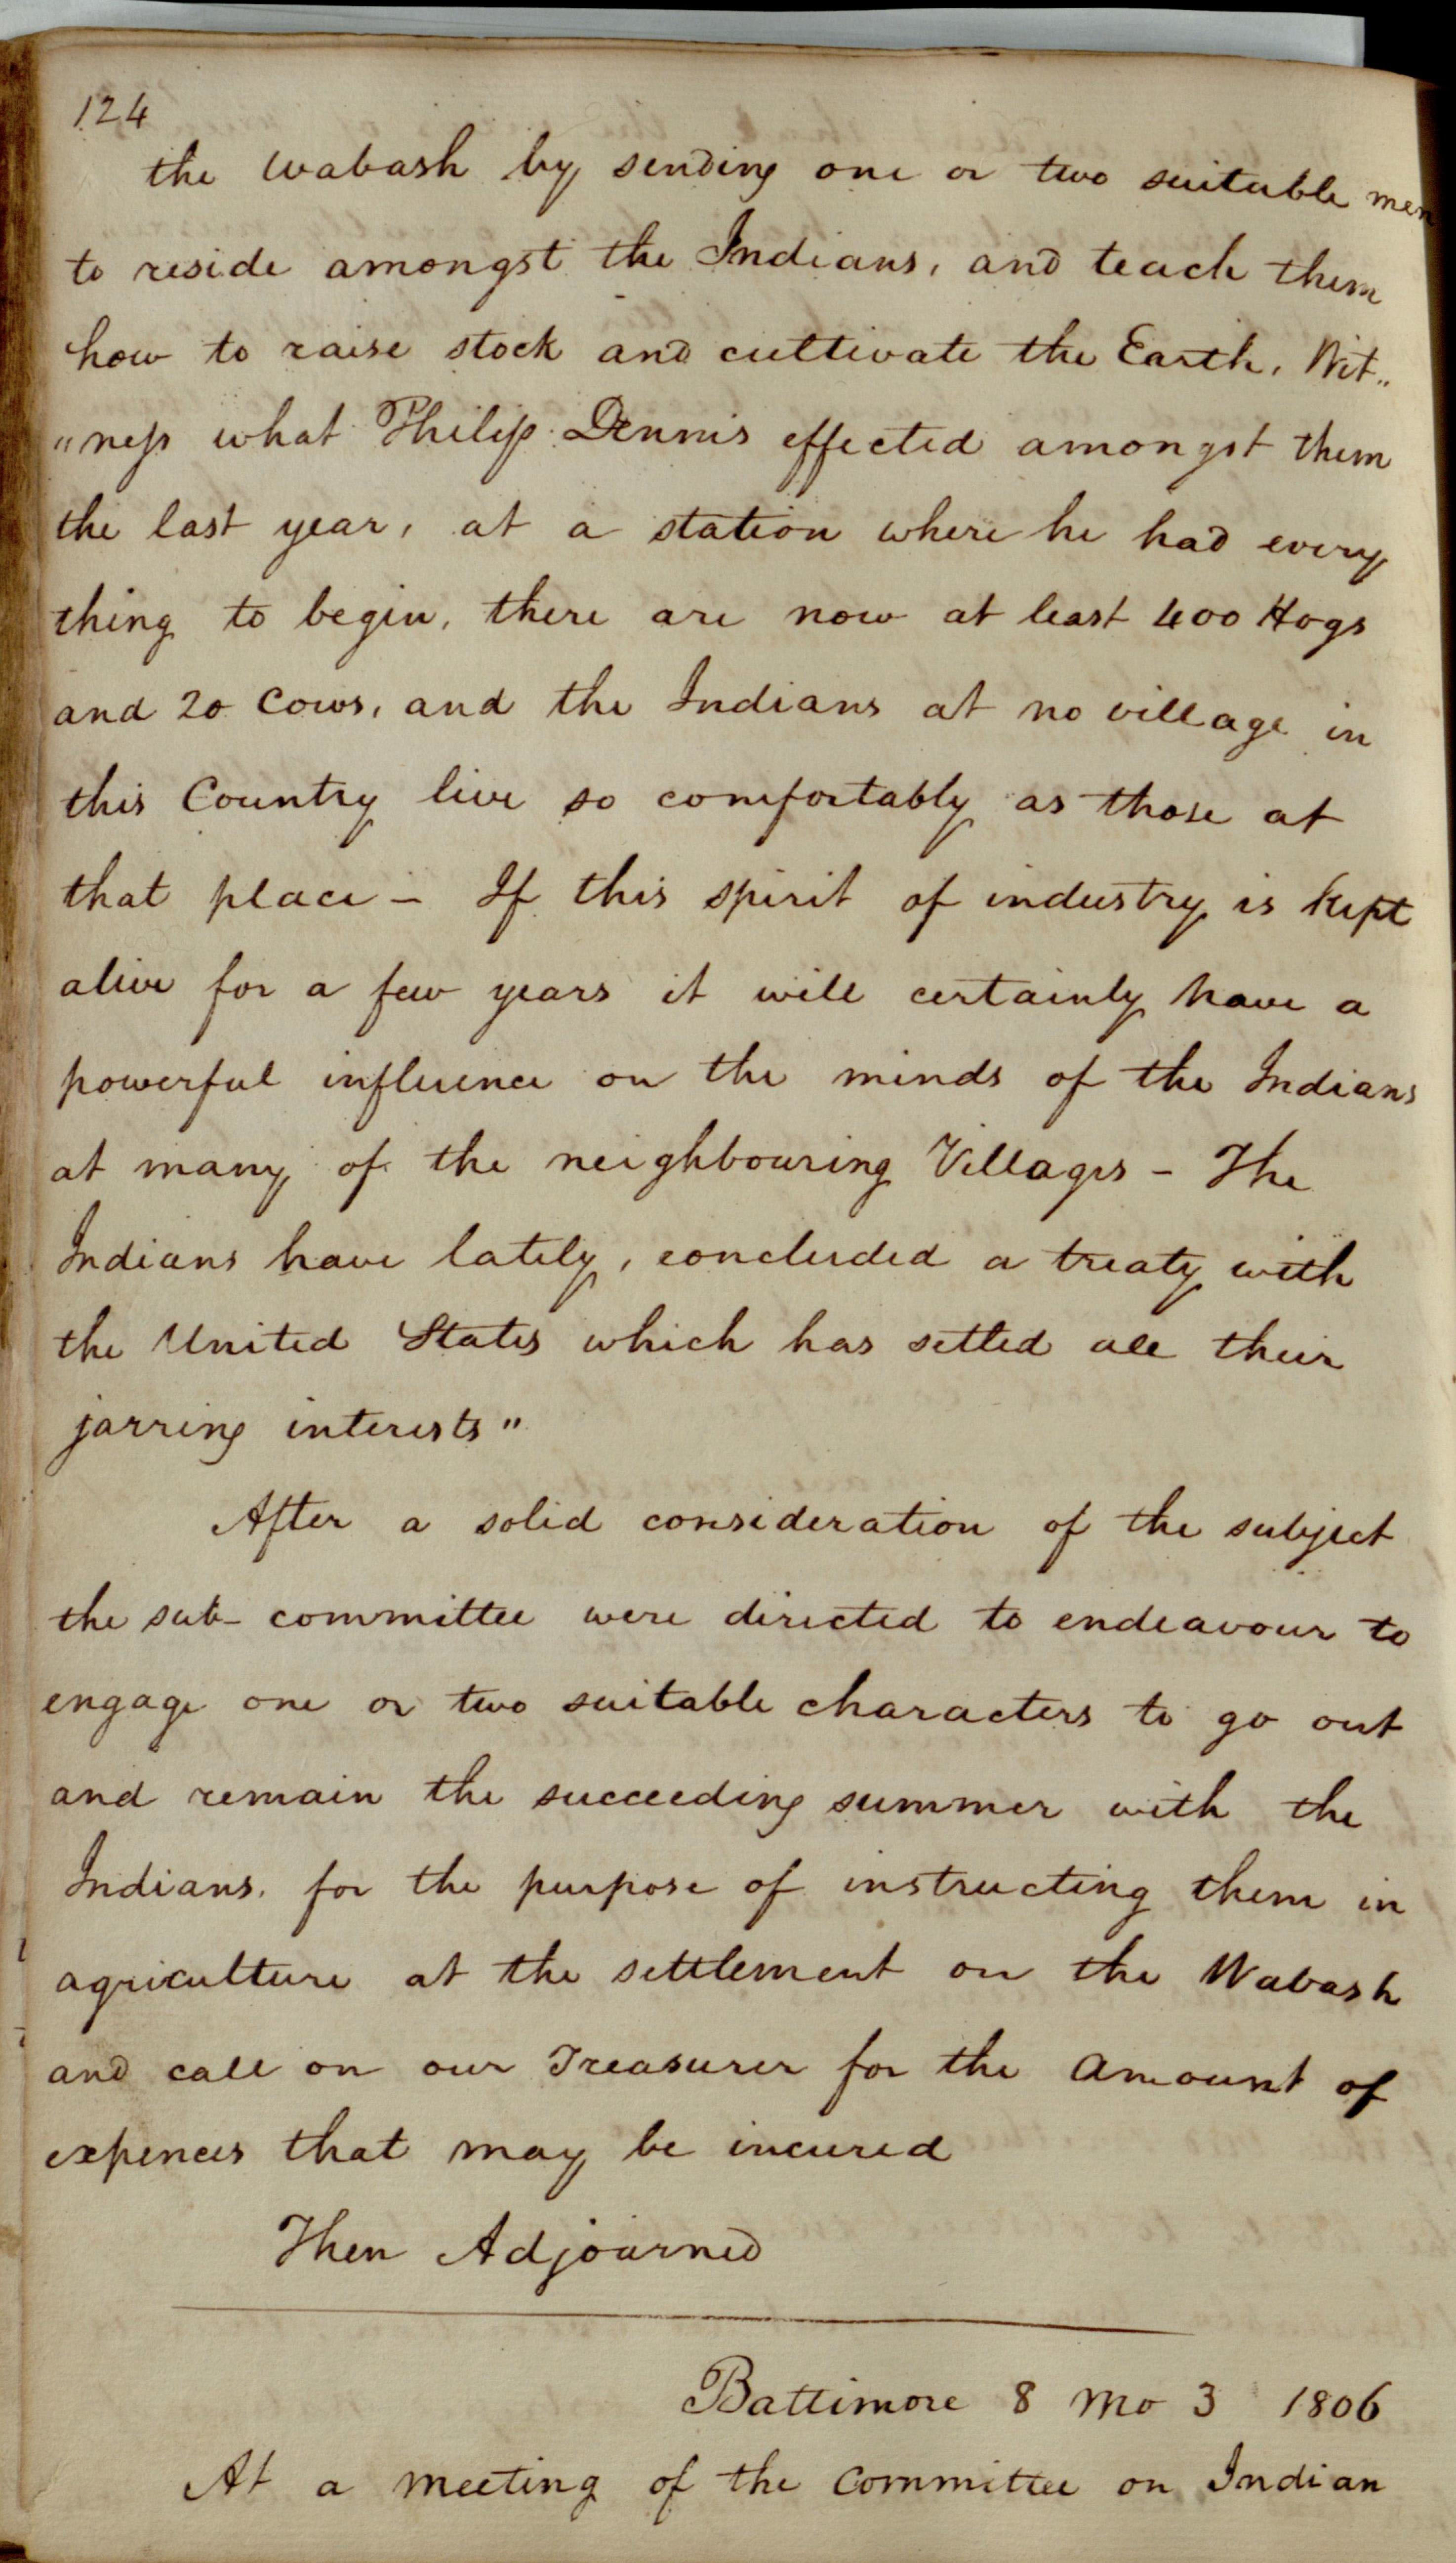 124
the Wabash by sending one or two suitable men
to reside amongst the Indians, and teach them
how to raise stock and cultivate the Earth, Wit„
„ness what Philip Dennis effected amongst them
the last year, at a station where he had every
thing to begin, there are now at least 400 Hogs
and 20 Cows, and the Indians at no village in
this Country live so comfortably as those at
that place – If this spirit of industry is kept
alive for a few years it will certainly have a
powerful influence on the minds of the Indians
at many of the neighbouring Villages – The
Indians have lately, concluded a treaty with
the United States which has settled all their
jarring interests"
After a solid consideration of the subject
the sub-committee were directed to endeavour to
engage one or two suitable characters to go out
and remain the succeeding summer with the
Indians, for the purpose of instructing them in
agriculture at the settlement on the Wabash
and call on our Treasurer for the amount of
expences that may be incured
Then Adjourned
Baltimore 8 Mo 3 1806
At a meeting of the Committee on Indian